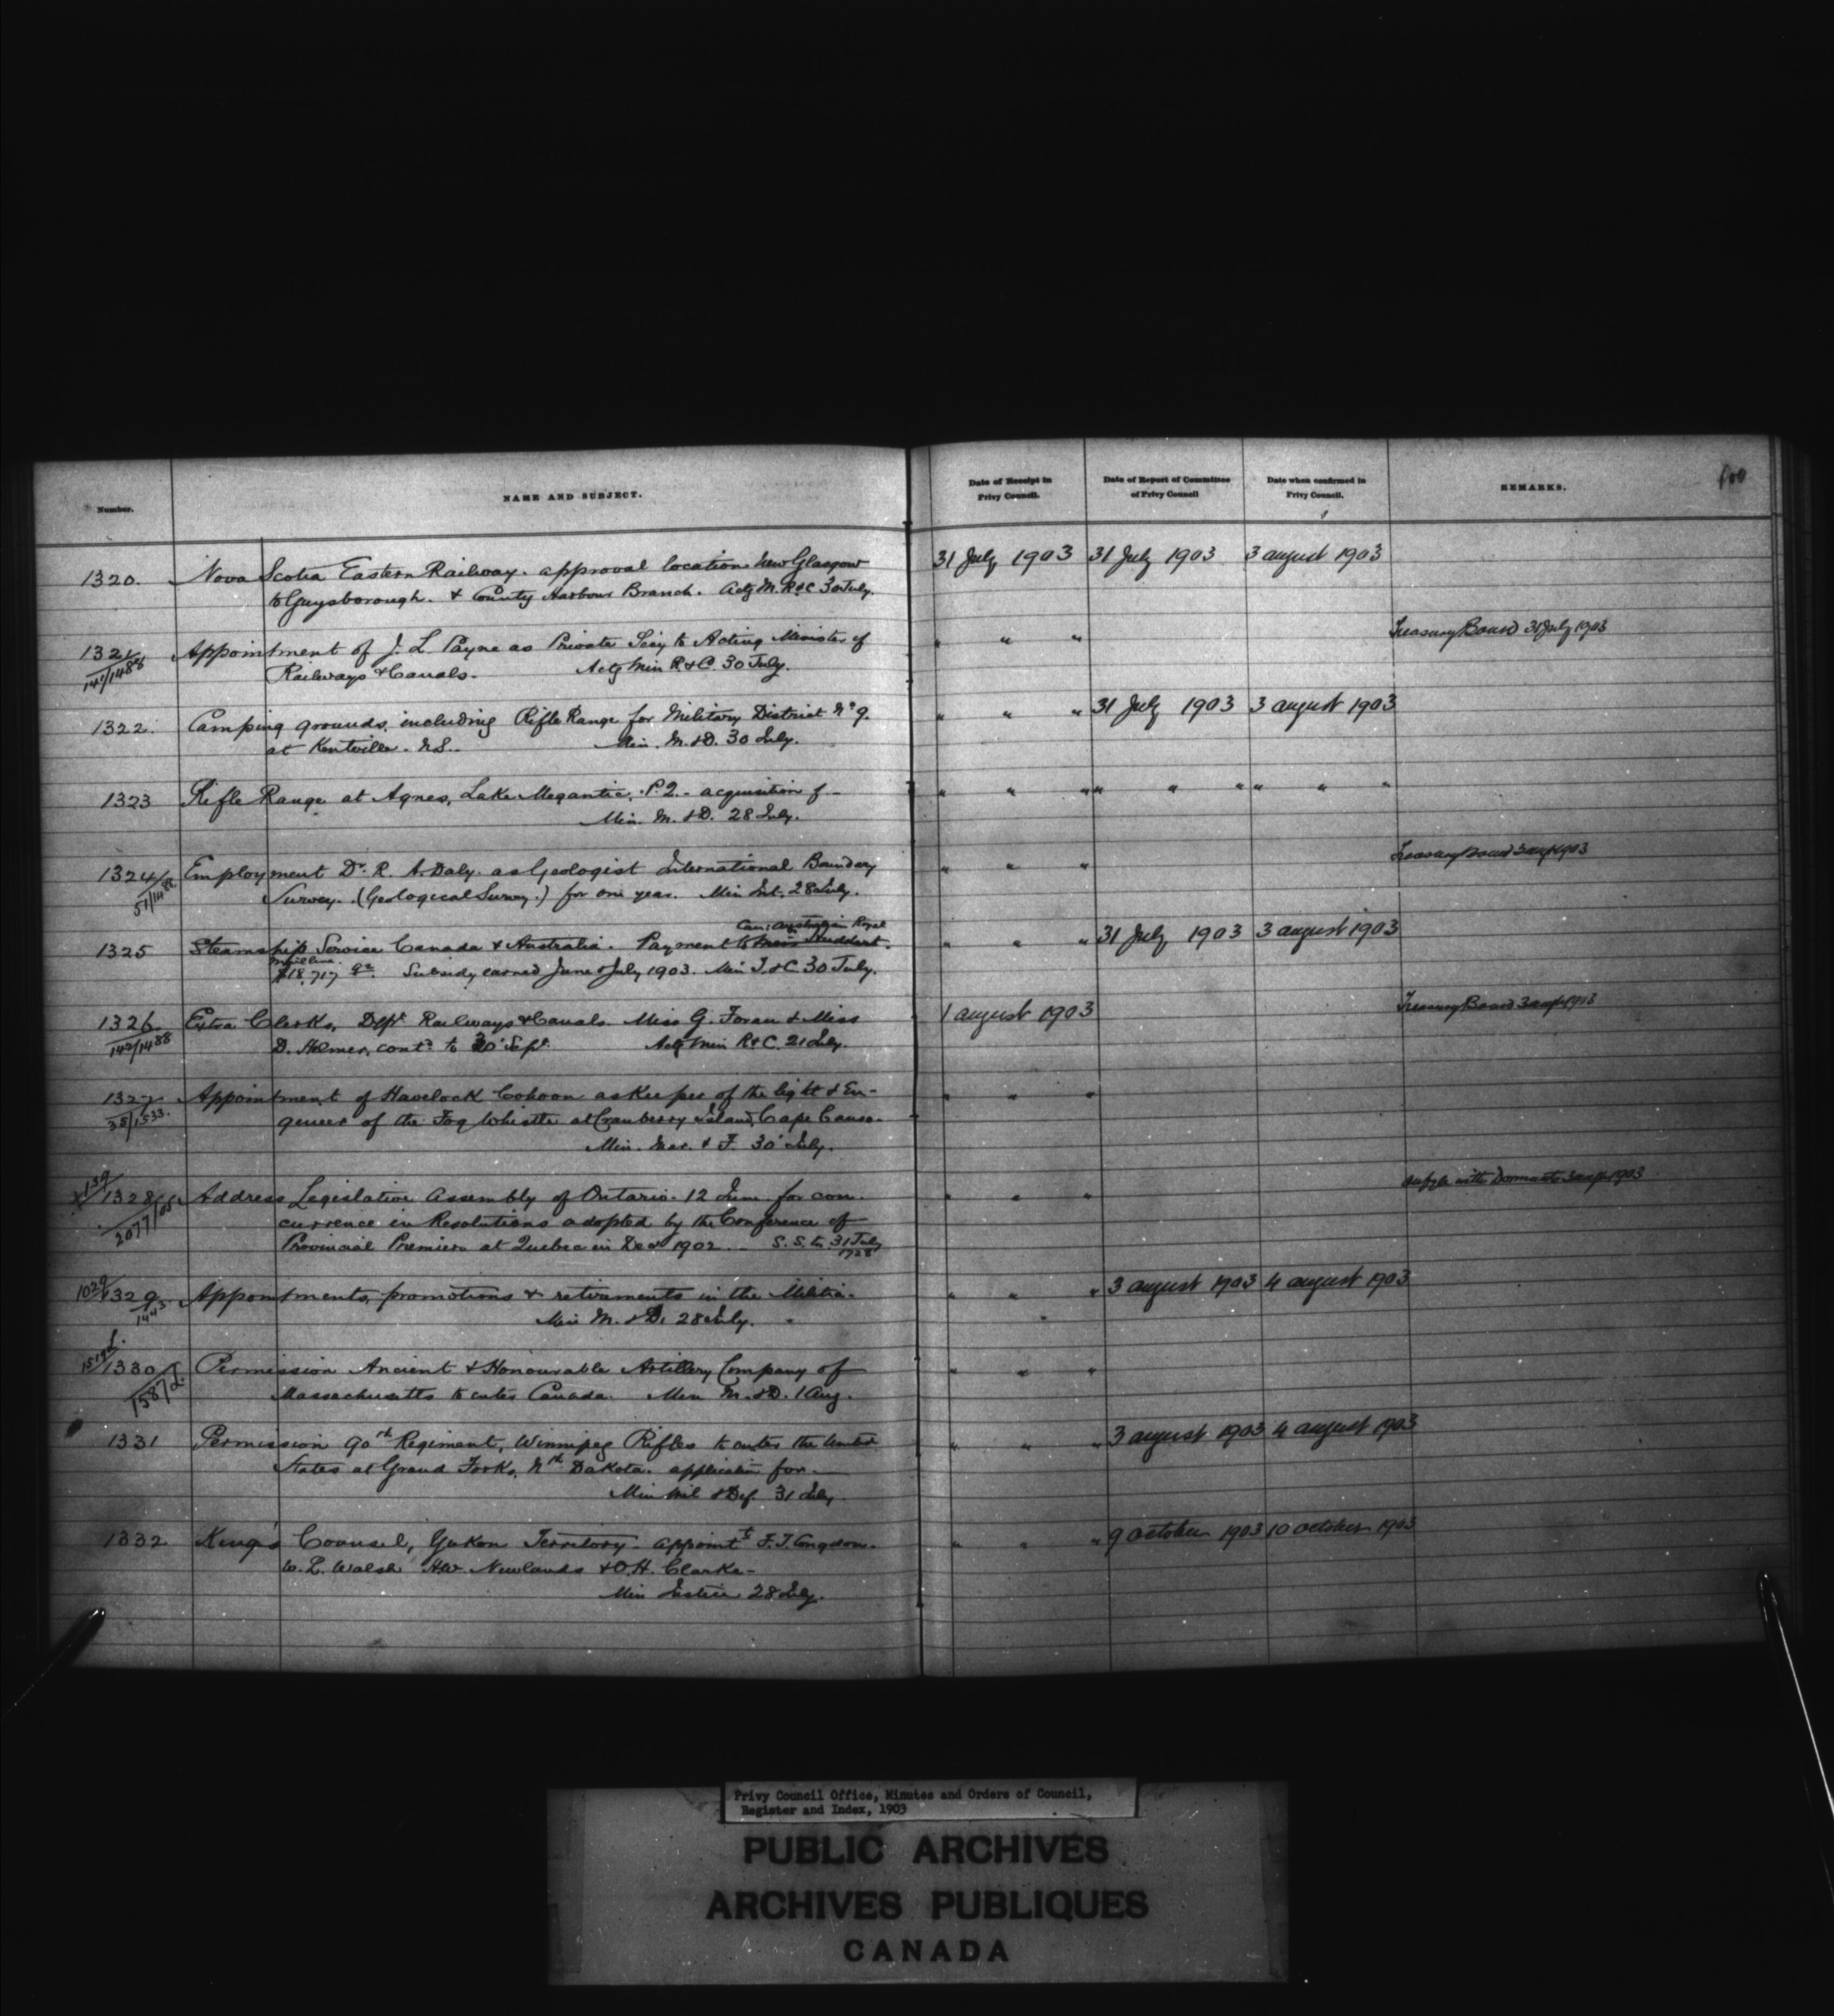 Number. NAME AND SUBJECT. Date of Receipt in Privy Council. Date of Report of Committee of Privy Council Date when confirmed in Privy Council. REMARKS. 100
1320. Nova Scotia Eastern Railway. approval location New Glasgow 31 July 1903 31 July 1903 3 august 1903
to Guysborough. & County Harbour Branch. Actg M. R&C 30 July.
1321 Appointment of J. L. Payne as Private Secy to Acting Minister of " " " Treasury Board 31 July 1903
141/1488 Railways & Canals. Actg Min R.&C. 30 July.
1322. Camping grounds, including Rifle Range for Military District No 9. " " " 31 July 1903 3 august 1903
at Kentville. N.S. Min. M.&D. 30 July.
1323 Rifle Range at Agnes, Lake Megantic, P.Q. - acquisition of - " " " " " " " " "
Min. M.&D. 28 July.
1324 Employment Dr. R. A. Daly. as Geologist International Boundary " " " Treasury Board 3 augt 1903
Survey. (Geological Survey.) for one year. Min Int. 28 July.
Can: Australian Royal
1325 Steamship Service Canada & Australia. Payment to Messrs Huddart. " " " 31 July 1903 3 august 1903
Mail line.
$18,717 92. Subsidy earned June & July 1903. Min T.&C. 30 July.
1326 Extra Clerks, Dept Railways & Canals. Miss G. Foran & Miss 1 august 1903 Treasury Board 3 augt 1903
142/1488 D. Holmer, contd to 30 Sept. Actg Min R&C. 21 July.
1327 Appointment of Havelock Cohoon as Keeper of the light & En- " "
38/1533. gineer of the Fog Whistle at Cranberry Island, Cape Canso.
Min. Mar. & F. 30 July.
139/1328 Address Legislative Assembly of Ontario. 12 June for con- " " " with Dormants 3 augt 1903
2077/05 currence in Resolutions adopted by the Conference of
Provincial Premiers at Quebec in Decr 1902 - S.S. 31 July
1728
1029/1329 Appointments, promotions & retirements in the Militia. " " " 3 august 1903 4 august 1903
1443. Min M.&D. 28 July.
1330 Permission Ancient & Honourable Artillery Company of " " "
1587 Massachusetts to enter Canada. Min M.&D. 1 Aug.
1331 Permission 90th Regiment, Winnipeg Rifles to enter the United " " " 3 august 1903 4 august 1903
States at Grand Forks, Nth Dakota. application for -
Min Mil & Def. 31 July.
1332 King's Counsel, Yukon Territory - appointt F. T. Congdon. " " " 9 october 1903 10 october 1903
W. L. Walsh H.W. Newlands & O.H. Clarke -
Min Justice 28 July.
Privy Council Office, Minutes and Orders of Council,
Register and Index, 1903
PUBLIC ARCHIVES
ARCHIVES PUBLIQUES
CANADA